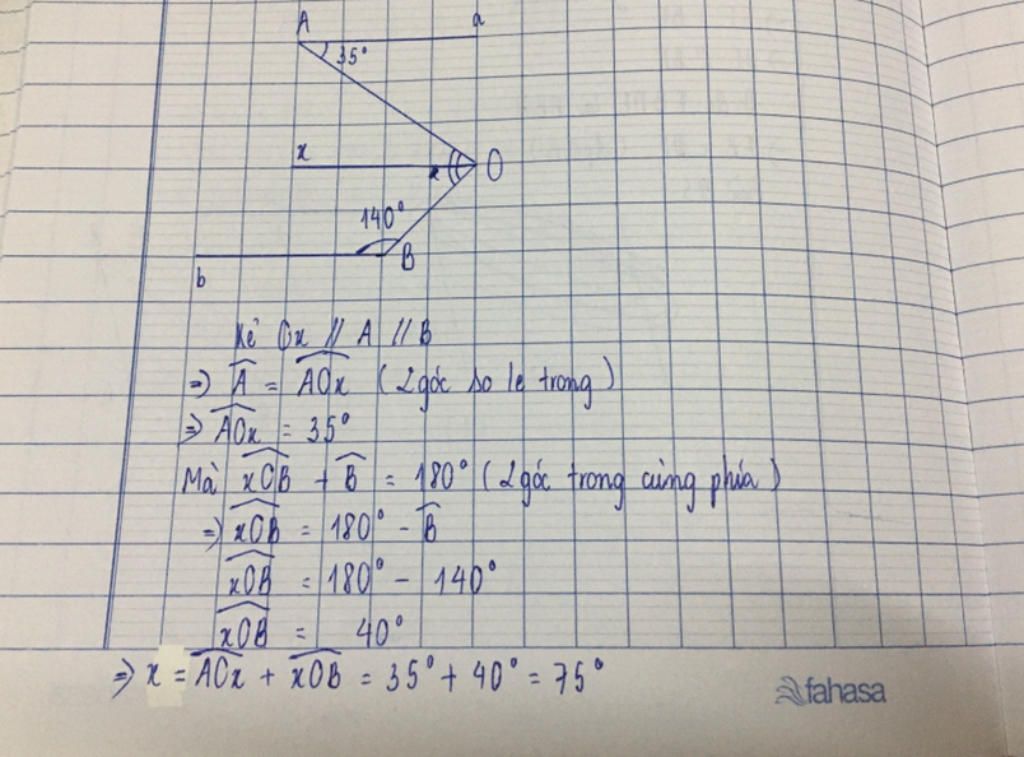 A a
35°
x
x O
140°
b B
Kẻ Ox // A // B
=> A = AOx (2 góc so le trong)
=> AOx = 35°
Mà xOB + B = 180° (2 góc trong cùng phía)
=> xOB = 180° - B
xOB = 180° - 140°
xOB = 40°
=> x = AOx + xOB = 35° + 40° = 75°
fahasa